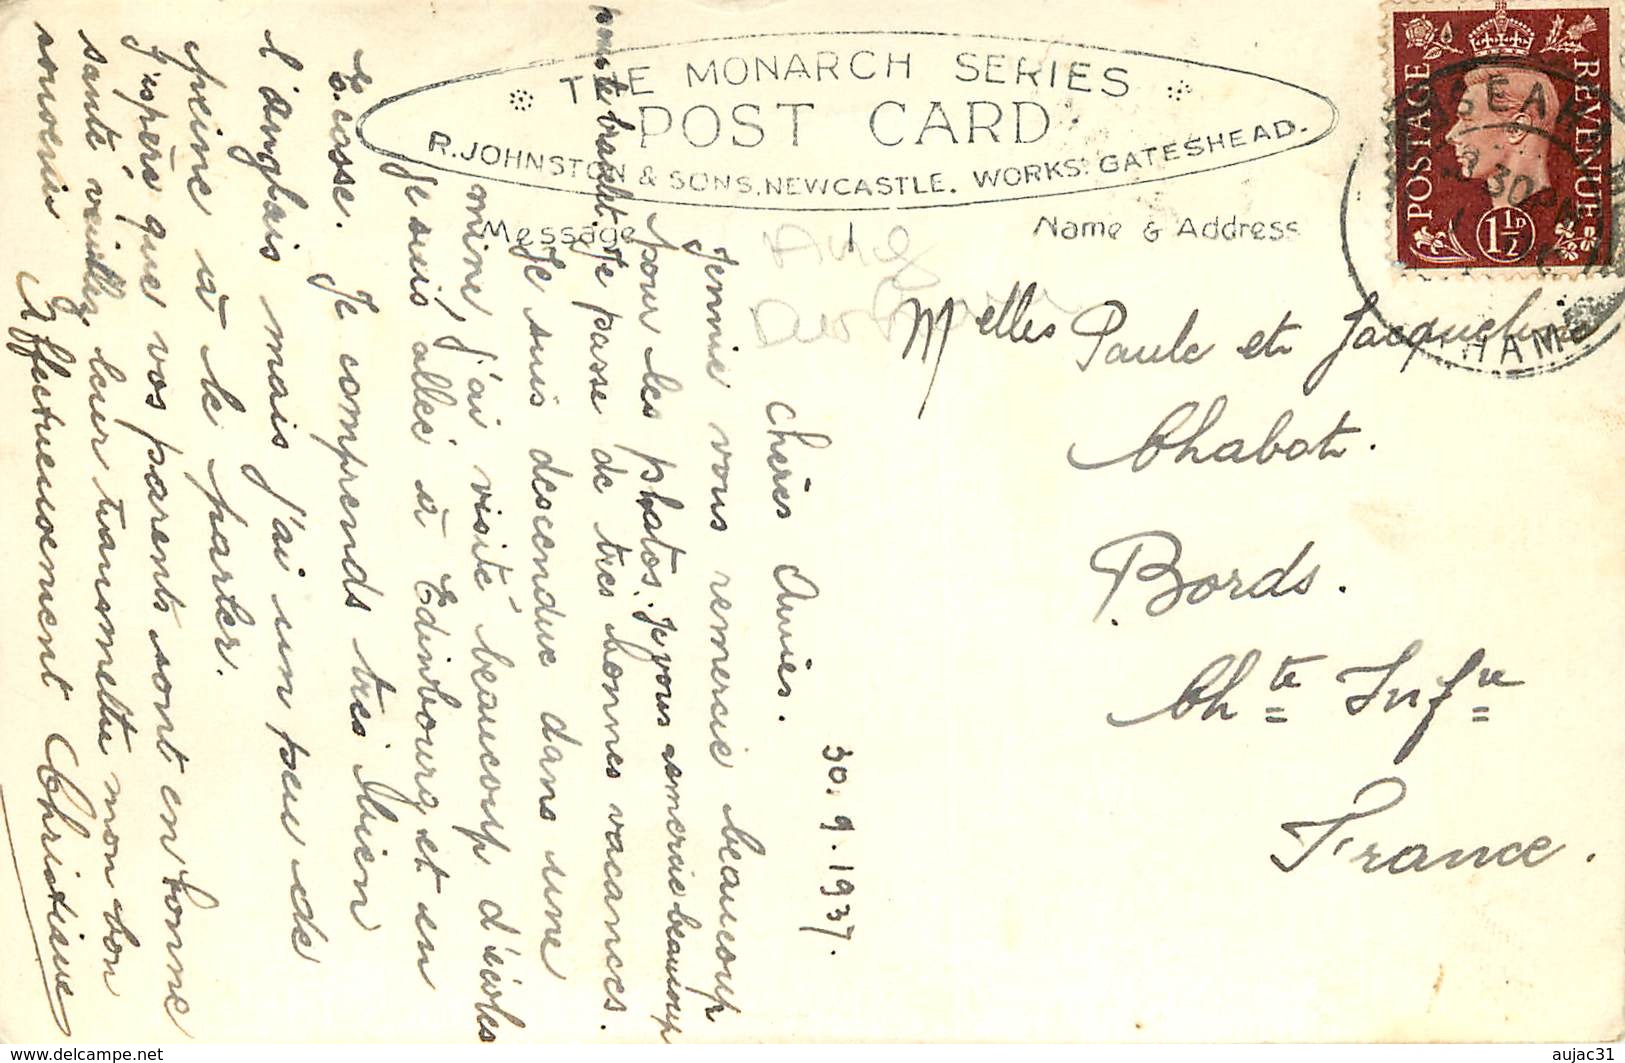 THE MONARCH SERIES
POST CARD
R. JOHNSTON & SONS, NEWCASTLE. WORKS: GATESHEAD.
Message
Name & Address
POSTAGE
REVENUE
1½D
SEAHA
30 PM
HAM
Melles Paule et Jacqueline
Chabot.
Bords.
Chte Infre
France.
30.9.1937.
Chères Amies.
Jennie vous remercie beaucoup
pour les photos. Je vous remercie beaucoup
Je passe de très bonnes vacances.
Je suis descendue dans une
mine, j'ai visité beaucoup d'écoles
Je suis allée à Edimbourg et en
Ecosse. Je comprends très bien
l'anglais mais j'ai un peu de
peine à le parler.
J'espère que vos parents sont en bonne
santé, veuillez leur transmettre mon bon
souvenir Affectueusement Christiane
www.delcampe.net
aujac31